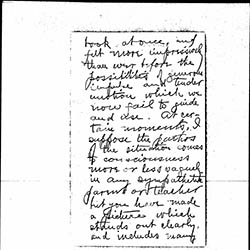 book at once, and
felt more impressed
than ever before the
possibilities of generous
impulse and tender
emotion which we
now fail to guide
and use. At cer-
tain moments, I
suppose the pathos
of the situation comes
to consciousness
more or less vaguely
in any sympathetic
parent or teacher
but you have made
a picture which
stands out clearly,
and includes many